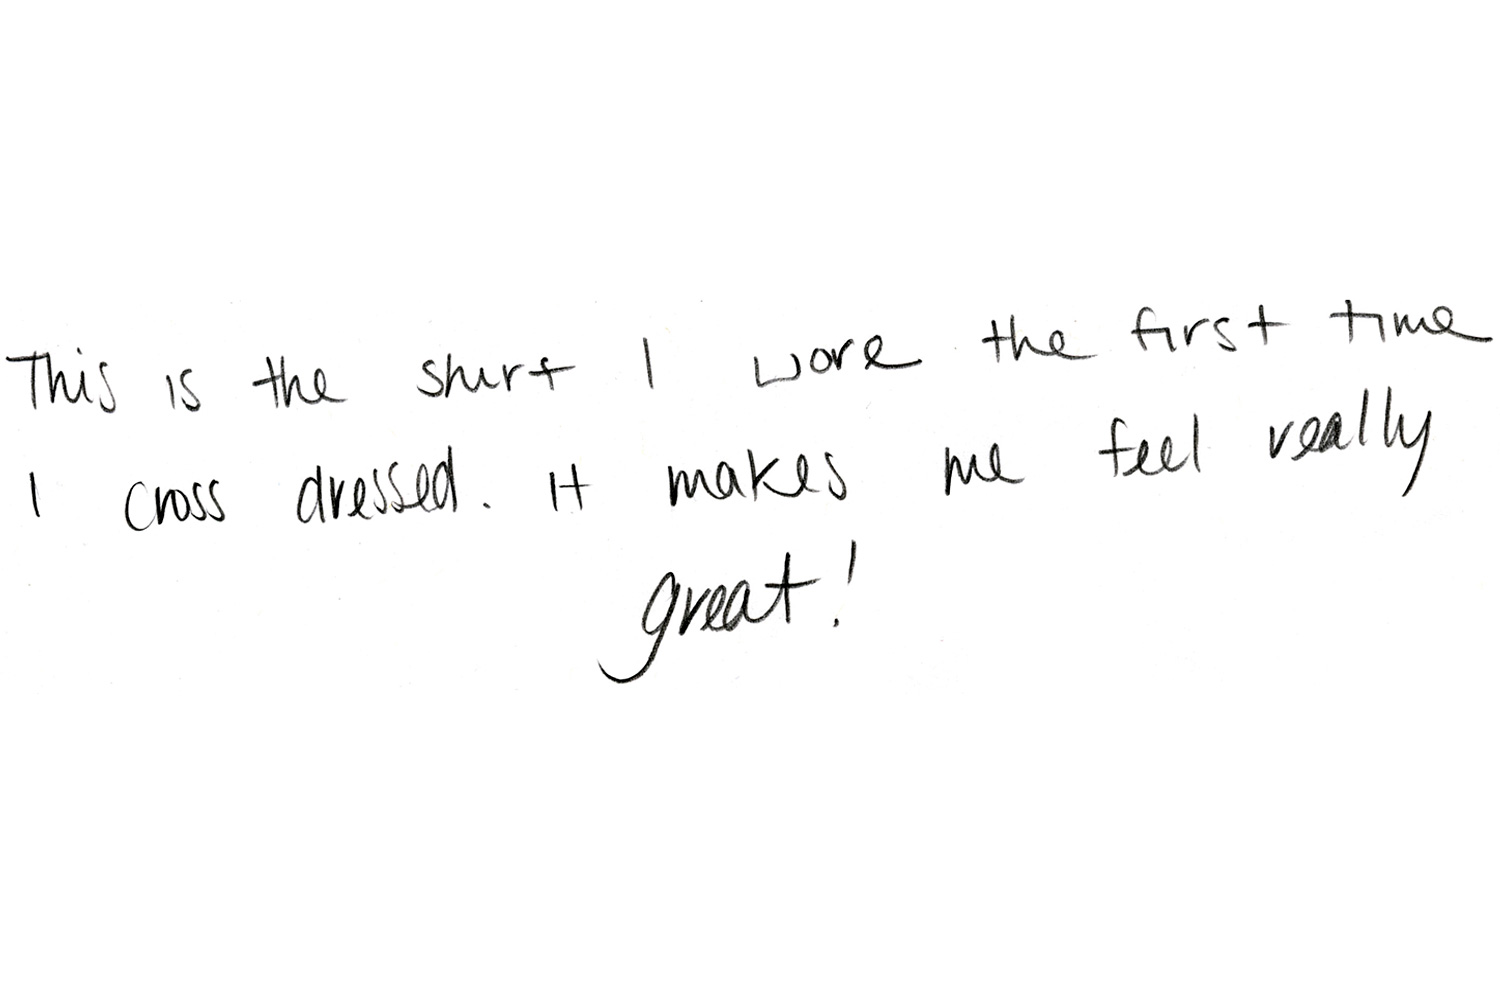 This is the shirt I wore the first time
I cross dressed. It makes me feel really
great!